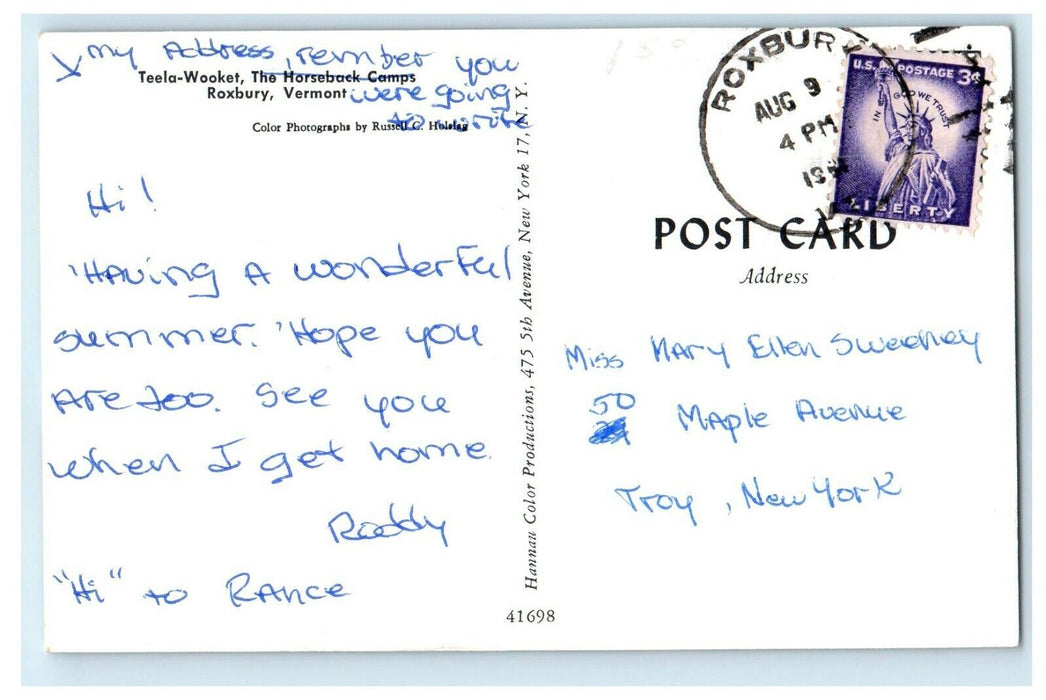 my Address, rember you
Teela-Wooket, The Horseback Camps
Roxbury, Vermont were going
Color Photographs by Russell C. Holslag to write
Hi!
'Having A wonderful
summer. 'Hope you
Are too. See you
when I get home.
Roddy
"Hi" to Rance
Hannau Color Productions, 475 5th Avenue, New York 17, N. Y.
41698
ROXBURY
AUG 9
4 PM
U.S. POSTAGE 3¢
IN GOD WE TRUST
LIBERTY
POST CARD
Address
Miss Mary Ellen Sweeney
50 Maple Avenue
Troy, New York